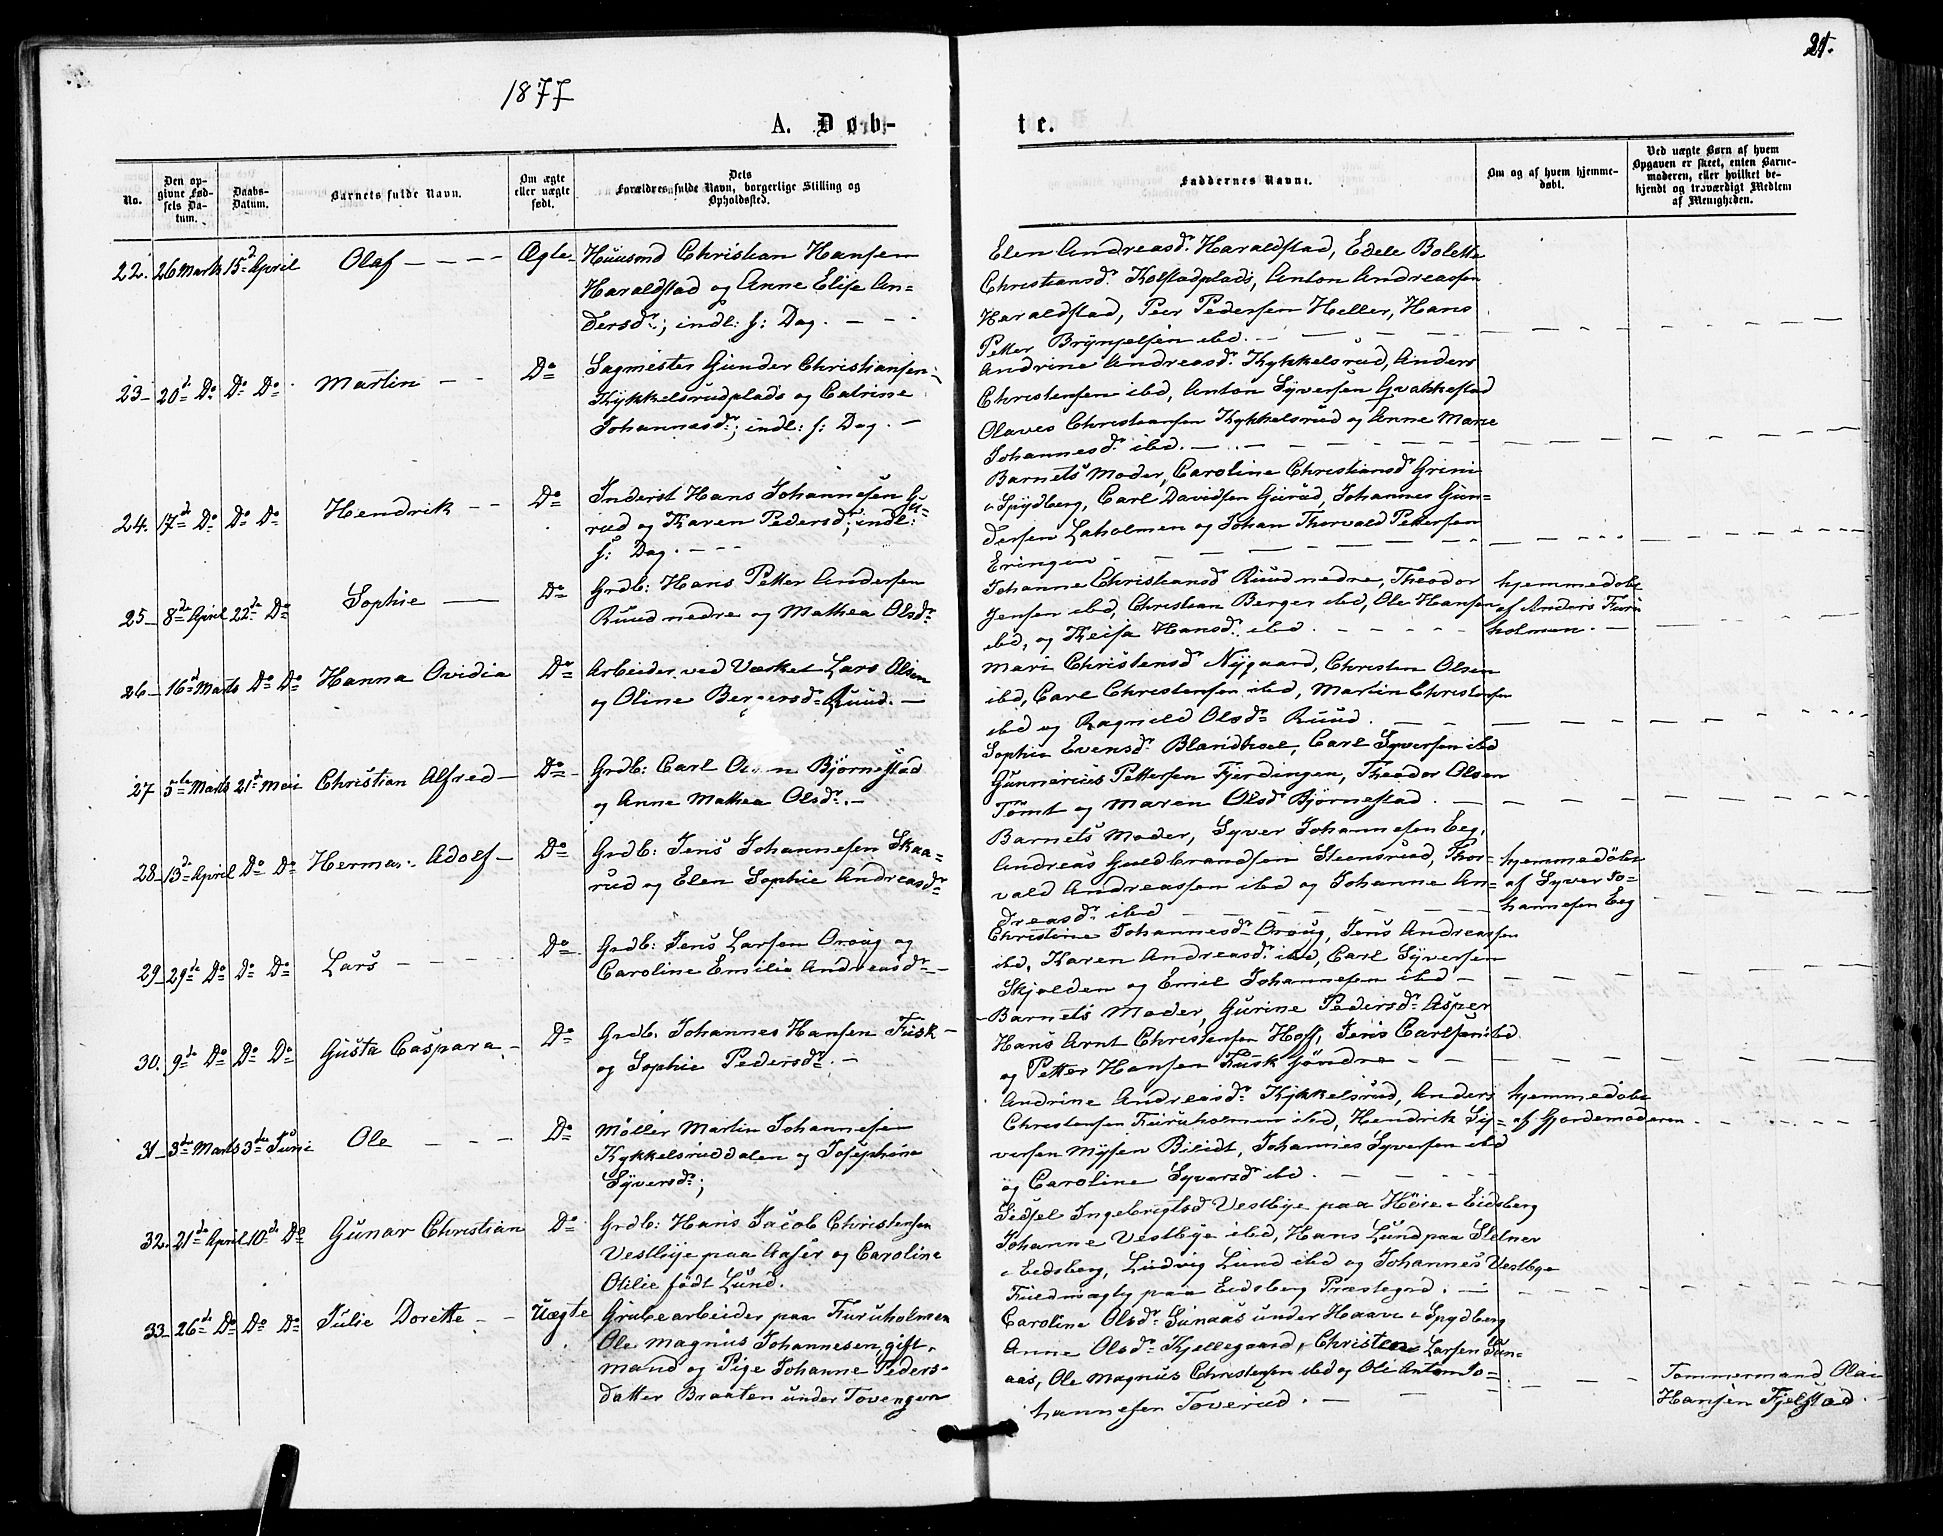 21.
1877
A. Døb-
te.
No.
Den op-
givne Fød-
sels Da-
tum.
Daabs-
Datum.
Barnets fulde Navn.
Om ægte
eller uægte
født.
Dets
Forældres fulde Navn, borgerlige Stilling og
Opholdssted.
Faddernes Navne.
Om og af hvem hjemme-
døbt.
Ved uægte Børn af hvem
Opgaven er skeet, enten Barne-
moderen, eller hvilket be-
kjendt og troværdigt Medlem
af Menigheden.
22. 26 Marts 15d April Olaf - - - - Ægte Huusmd Christian Hansen
Haraldstad og Anne Elise An=
dersdr; indl: s: Dag. - - -
Elen Andreasdr Haraldstad, Edele Bolette
Christiansdr Kolstadplads, Anton Andreassen
Haraldstad, Peer Pedersen Heller, Hans
Petter Brynjelsen ibd.
23 - 20de Do Do Do Martin - - Do Sagmester Gunder Christiansen
Kykkelsrudplads og Catrine
Johannesdr; indl: s: Dag. -
Andrine Andreasdr Kykkelsrud, Anders
Christensen ibd, Anton Syversen Gvakkestad
Olaves Christiansen Kykkelsrud og Anne Marie
Johannesdr ibd.
24. 17de Do Do Do Hendrik - - Do Inderst Hans Johannesen Gu=
rud og Karen Pedersdr; indl:
s: Dag. - - -
Barnets Moder, Caroline Christiansdr Grini
i Spydberg, Carl Davidsen Gurud, Johannes Gun=
dersen Laholmen og Johan Thorvald Pettersen
Eringen
25 - 8de April 22de Do Sophie - Do Grdb: Hans Petter Andersen
Ruud nedre og Mathea Olsdr
Johanne Christiansd Ruud nedre, Theodor
Jensen ibd, Christian Berger ibd, Ole Hansen
ibd, og Hansdr ibd.
hjemmedøbt
af Anders Furu
holmen. -
26 - 16d Marts Do Do Hanna Ovidia Do Arbeider ved Værket Lars Olsen
og Oline Bergersdr Ruud. -
Mari Christensd Nygaard, Christen Olsen
ibd, Carl Christensen ibd, Martin Christensen
ibd og Ragnild Olsdr Ruud.
27 5te Marts 21de Mai Christian Alfred - Do - Grdb: Carl Bjørnestad
og Anne Mathea Olsdr. -
Sophie Evensdr Blandhoel, Carl Syversen ibd
Gunnerius Pettersen Fjerdingen, Theodor Olsen
Tomt og Maren Olsdr Bjørnestad.
28 - 13de April Do Do Herman Adolf - Do Grdb: Jens Johannesen Skaa=
rud og Elen Sophie Andreasdr
Barnets Moder, Syver Johannesen Eeg,
Andreas Guldbrandsen Steensrud, Thor=
vald Andreassen ibd og Johanne An=
dreasdr ibd
hjemmedøbt
af Syver Jo=
hannesen Eeg
29 - 29de Do Do Do Lars - - - - Do Grdb: Jens Larsen Oraug og
Caroline Emilie Andreasdr -
Christine Johannesdr Oraug, Jens Andreassen
ibd, Karen Andreasdr ibd, Carl Syversen
Skjolden og Emil Johannesen ibd -
30. 9de Do Do Do Gusta Caspara - Do Grdb. Johannes Hansen Fusk -
og Sophie Pedersdr. -
Barnets Moder, Gurine Pedersdr Asper
Hans Arnt Christensen Hoff, Jens Carlsen ibd
og Petter Hansen Fusk søndre
31 - 3de Marts 3de Juni Ole - - - Do Møller Martin Johannesen
Kykkelsruddalen og Josephine
Syversdr;
Andrine Andreasdr Kykkelsrud, Anders
Christensen Furuholmen ibd, Hendrik Sy=
versen Mysen Bilidt, Johannes Syversen ibd
og Caroline Syversdr ibd.
hjemmedøbt
af Gjordemoderen
32. 21de April 10de Do Gunar Christian Do Grdb: Hans Jacob Christensen
Vestbye paa Aaser og Caroline
Otilie født Lund.
Sidsel Ingebrigtsd Vestbye paa Høie i Eidsberg
Johanne Vestbye ibd, Hans Lund paa Stelner
i Eidsberg, Ludvig Lund ibd og Johannes Vestbye
Fuldmægtg paa Eidsberg Præstegrd. -
33 - 26de Do Do Do Julie Dorette - - Uægte Grubearbeider paa Furuholmen
Ole Magnus Johannesen, gift
Mand og Pige Johanne Peders-
datter Braaten under Tovengen
Caroline Olsdr Sunaas under Haave i Spydberg
Anne Olsdr Kjellegaard, Christen Larsen Sun=
aas, Ole Magnus Christensen ibd og Ole Anton Jo=
hannesen Toverud. -
Tommermand Olai
Hansen Fjelstad.